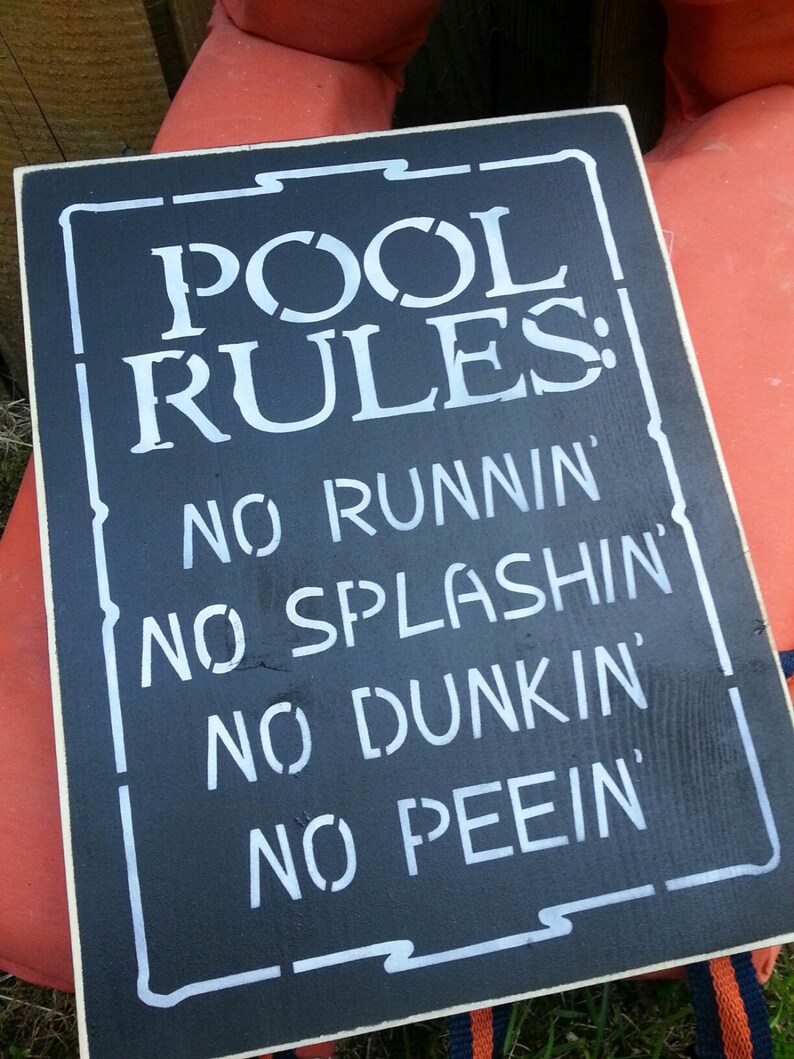 POOL
RULES:
NO RUNNIN'
NO SPLASHIN'
NO DUNKIN'
NO PEEIN'